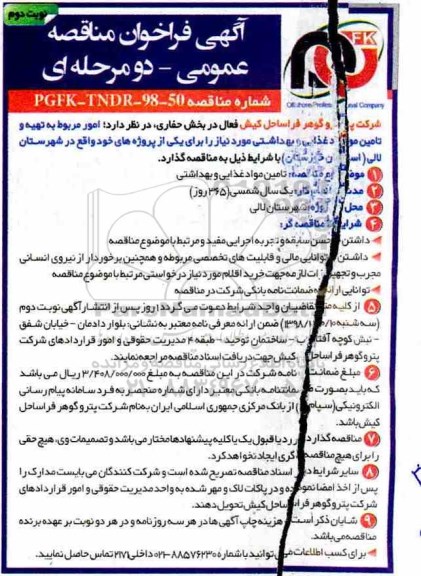 نوبت دوم
آگهی فراخوان مناقصه
عمومی - دو مرحله ای
FK
Offshore Professional Company
شماره مناقصه PGFK-TNDR-98-50
شرکت گوهر فراساحل کیش فعال در بخش حفاری، در نظر دارد؛ امور مربوط به تهیه و
تامین غذایی و بهداشتی مورد نیاز را برای یکی از پروژه های خود واقع در شهرستان
لالی با شرایط ذیل به مناقصه گذارد.
۱ تامین مواد غذایی و بهداشتی
۲ یک سال شمسی (۳۶۵ روز)
۳ شهرستان لالی
۴ مناقصه گر:
داشتن حسن سابقه و تجربه اجرایی مفید و مرتبط با موضوع مناقصه
داشتن توانایی مالی و قابلیت های تخصصی مربوطه و همچنین برخوردار از نیروی انسانی
مجرب و تجهیزات لازمه جهت خرید اقلام مورد نیاز درخواستی مرتبط با موضوع مناقصه
توانایی ارائه ضمانت نامه بانکی شرکت در مناقصه
۵ از کلیه متقاضیان واجد شرایط دعوت می گردد از روز پس از انتشار آگهی نوبت دوم
(سه شنبه ضمن ارائه معرفی نامه معتبر به نشانی: بلوار دادمان - خیابان شفق
- نبش کوچه - ساختمان توحید - طبقه ۴ مدیریت حقوقی و امور قراردادهای شرکت
پترو گوهر فراساحل کیش جهت دریافت اسناد مناقصه مراجعه نمایند.
۶ مبلغ ضمانت نامه شرکت در این مناقصه به مبلغ ۳/۴۰۸/۰۰۰/۰۰۰ ریال می باشد
که باید بصورت ضمانتنامه بانکی معتبر دارای شماره منحصر به فرد سامانه پیام رسانی
الکترونیکی (سپام) از بانک مرکزی جمهوری اسلامی ایران به نام شرکت پترو گوهر فراساحل
کیش باشد.
۷ مناقصه گذار در رد یا قبول یک یا کلیه پیشنهادها مختار می باشد و تصمیمات وی، هیچ حقی
را برای هیچ مناقصه گری ایجاد نخواهد کرد.
۸ سایر شرایط در اسناد مناقصه تصریح شده است و شرکت کنندگان می بایست مدارک را
پس از اخذ امضا نموده و در پاکات لاک و مهر شده به واحد مدیریت حقوقی و امور قراردادهای
شرکت پترو گوهر فراساحل کیش تحویل دهند.
۹ شایان ذکر است هزینه چاپ آگهی ها در هر سه روزنامه و در هر دو نوبت بر عهده برنده
مناقصه می باشد.
برای کسب اطلاعات می توانید با شماره ۸۸۵۷۶۲۳۰-۰۲۱ داخلی ۲۱۷۱ تماس حاصل نمایید.